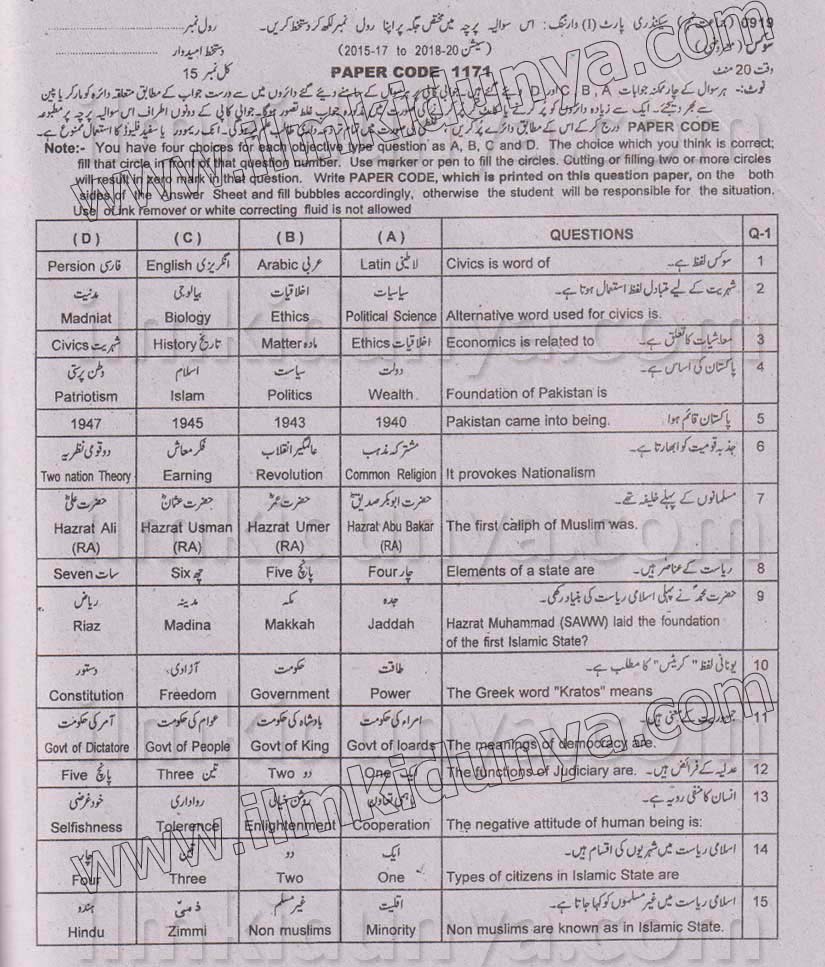 0919 سیکنڈری پارٹ (I) وارننگ: اس سوالیہ پرچہ میں مختص جگہ پر اپنا رول نمبر لکھ کر دستخط کریں۔ رول نمبر
سوکس (سیشن 2015-17 to 2018-20) دستخط امیدوار
وقت 20 منٹ PAPER CODE 1171 کل نمبر 15
نوٹ:- ہر سوال کے چار ممکنہ جوابات A, B, C اور D دیے گئے ہیں۔ جوابی کاپی پر ہر سوال کے سامنے دیے گئے دائروں میں سے درست جواب کے مطابق متعلقہ دائرہ کو مارکر یا پین
سے بھر دیجئے۔ ایک سے زیادہ دائروں کو پر کرنے یا کاٹ کر پر کرنے کی صورت میں مذکورہ جواب غلط تصور ہوگا۔ جوابی کاپی کے دونوں اطراف اس سوالیہ پرچہ پر مطبوعہ
PAPER CODE درج کر کے اس کے مطابق دائرے پر کریں، غلطی کی صورت میں تمام تر ذمہ داری طالب علم پر ہوگی۔ انک ریموور یا سفید فلیوڈ کا استعمال ممنوع ہے۔
Note:- You have four choices for each objective type question as A, B, C and D. The choice which you think is correct;
fill that circle in front of that question number. Use marker or pen to fill the circles. Cutting or filling two or more circles
will result in zero mark in that question. Write PAPER CODE, which is printed on this question paper, on the both
sides of the Answer Sheet and fill bubbles accordingly, otherwise the student will be responsible for the situation.
Use of Ink remover or white correcting fluid is not allowed
(D) (C) (B) (A) QUESTIONS Q-1
Persion فارسی English انگریزی Arabic عربی Latin لاطینی Civics is word of سوکس لفظ ہے۔ 1
مدنیت بیالوجی اخلاقیات سیاسیات شہریت کے لیے متبادل لفظ استعمال ہوتا ہے۔ 2
Madniat Biology Ethics Political Science Alternative word used for civics is.
Civics شہریت History تاریخ Matter مادہ Ethics اخلاقیات Economics is related to معاشیات کا تعلق ہے۔ 3
وطن پرستی اسلام سیاست دولت پاکستان کی اساس ہے۔ 4
Patriotism Islam Politics Wealth Foundation of Pakistan is
1947 1945 1943 1940 Pakistan came into being. پاکستان قائم ہوا 5
دو قومی نظریہ فکر معاش عالمگیر انقلاب مشترکہ مذہب جذبہ قومیت کو ابھارتا ہے۔ 6
Two nation Theory Earning Revolution Common Religion It provokes Nationalism
حضرت علیؓ حضرت عثمانؓ حضرت عمرؓ حضرت ابوبکر صدیقؓ مسلمانوں کے پہلے خلیفہ تھے۔ 7
Hazrat Ali Hazrat Usman Hazrat Umer Hazrat Abu Bakar The first caliph of Muslim was.
(RA) (RA) (RA) (RA)
Seven سات Six چھ Five پانچ Four چار Elements of a state are ریاست کے عناصر ہیں۔ 8
ریاض مدینہ مکہ جدہ حضرت محمدؐ نے پہلی اسلامی ریاست کی بنیاد رکھی۔ 9
Riaz Madina Makkah Jaddah Hazrat Muhammad (SAWW) laid the foundation
of the first Islamic State?
دستور آزادی حکومت طاقت یونانی لفظ "کریٹس" کا مطلب ہے۔ 10
Constitution Freedom Government Power The Greek word "Kratos" means
آمر کی حکومت عوام کی حکومت بادشاہ کی حکومت امراء کی حکومت جمہوریت کے معنی ہیں۔ 11
Govt of Dictatore Govt of People Govt of King Govt of loards The meanings of democracy are.
Five پانچ Three تین Two دو One ایک The functions of Judiciary are. عدلیہ کے فرائض ہیں۔ 12
خود غرضی رواداری روشن خیالی باہمی تعاون انسان کا منفی رویہ ہے۔ 13
Selfishness Tolerence Enlightenment Cooperation The negative attitude of human being is:
چار تین دو ایک اسلامی ریاست میں شہریوں کی اقسام ہیں۔ 14
Four Three Two One Types of citizens in Islamic State are
ہندو ذمی غیر مسلم اقلیت اسلامی ریاست میں غیر مسلموں کو کہا جاتا ہے۔ 15
Hindu Zimmi Non muslims Minority Non muslims are known as in Islamic State.
www.ilmkidunya.com
www.ilmkidunya.com
ilmkidunya.com